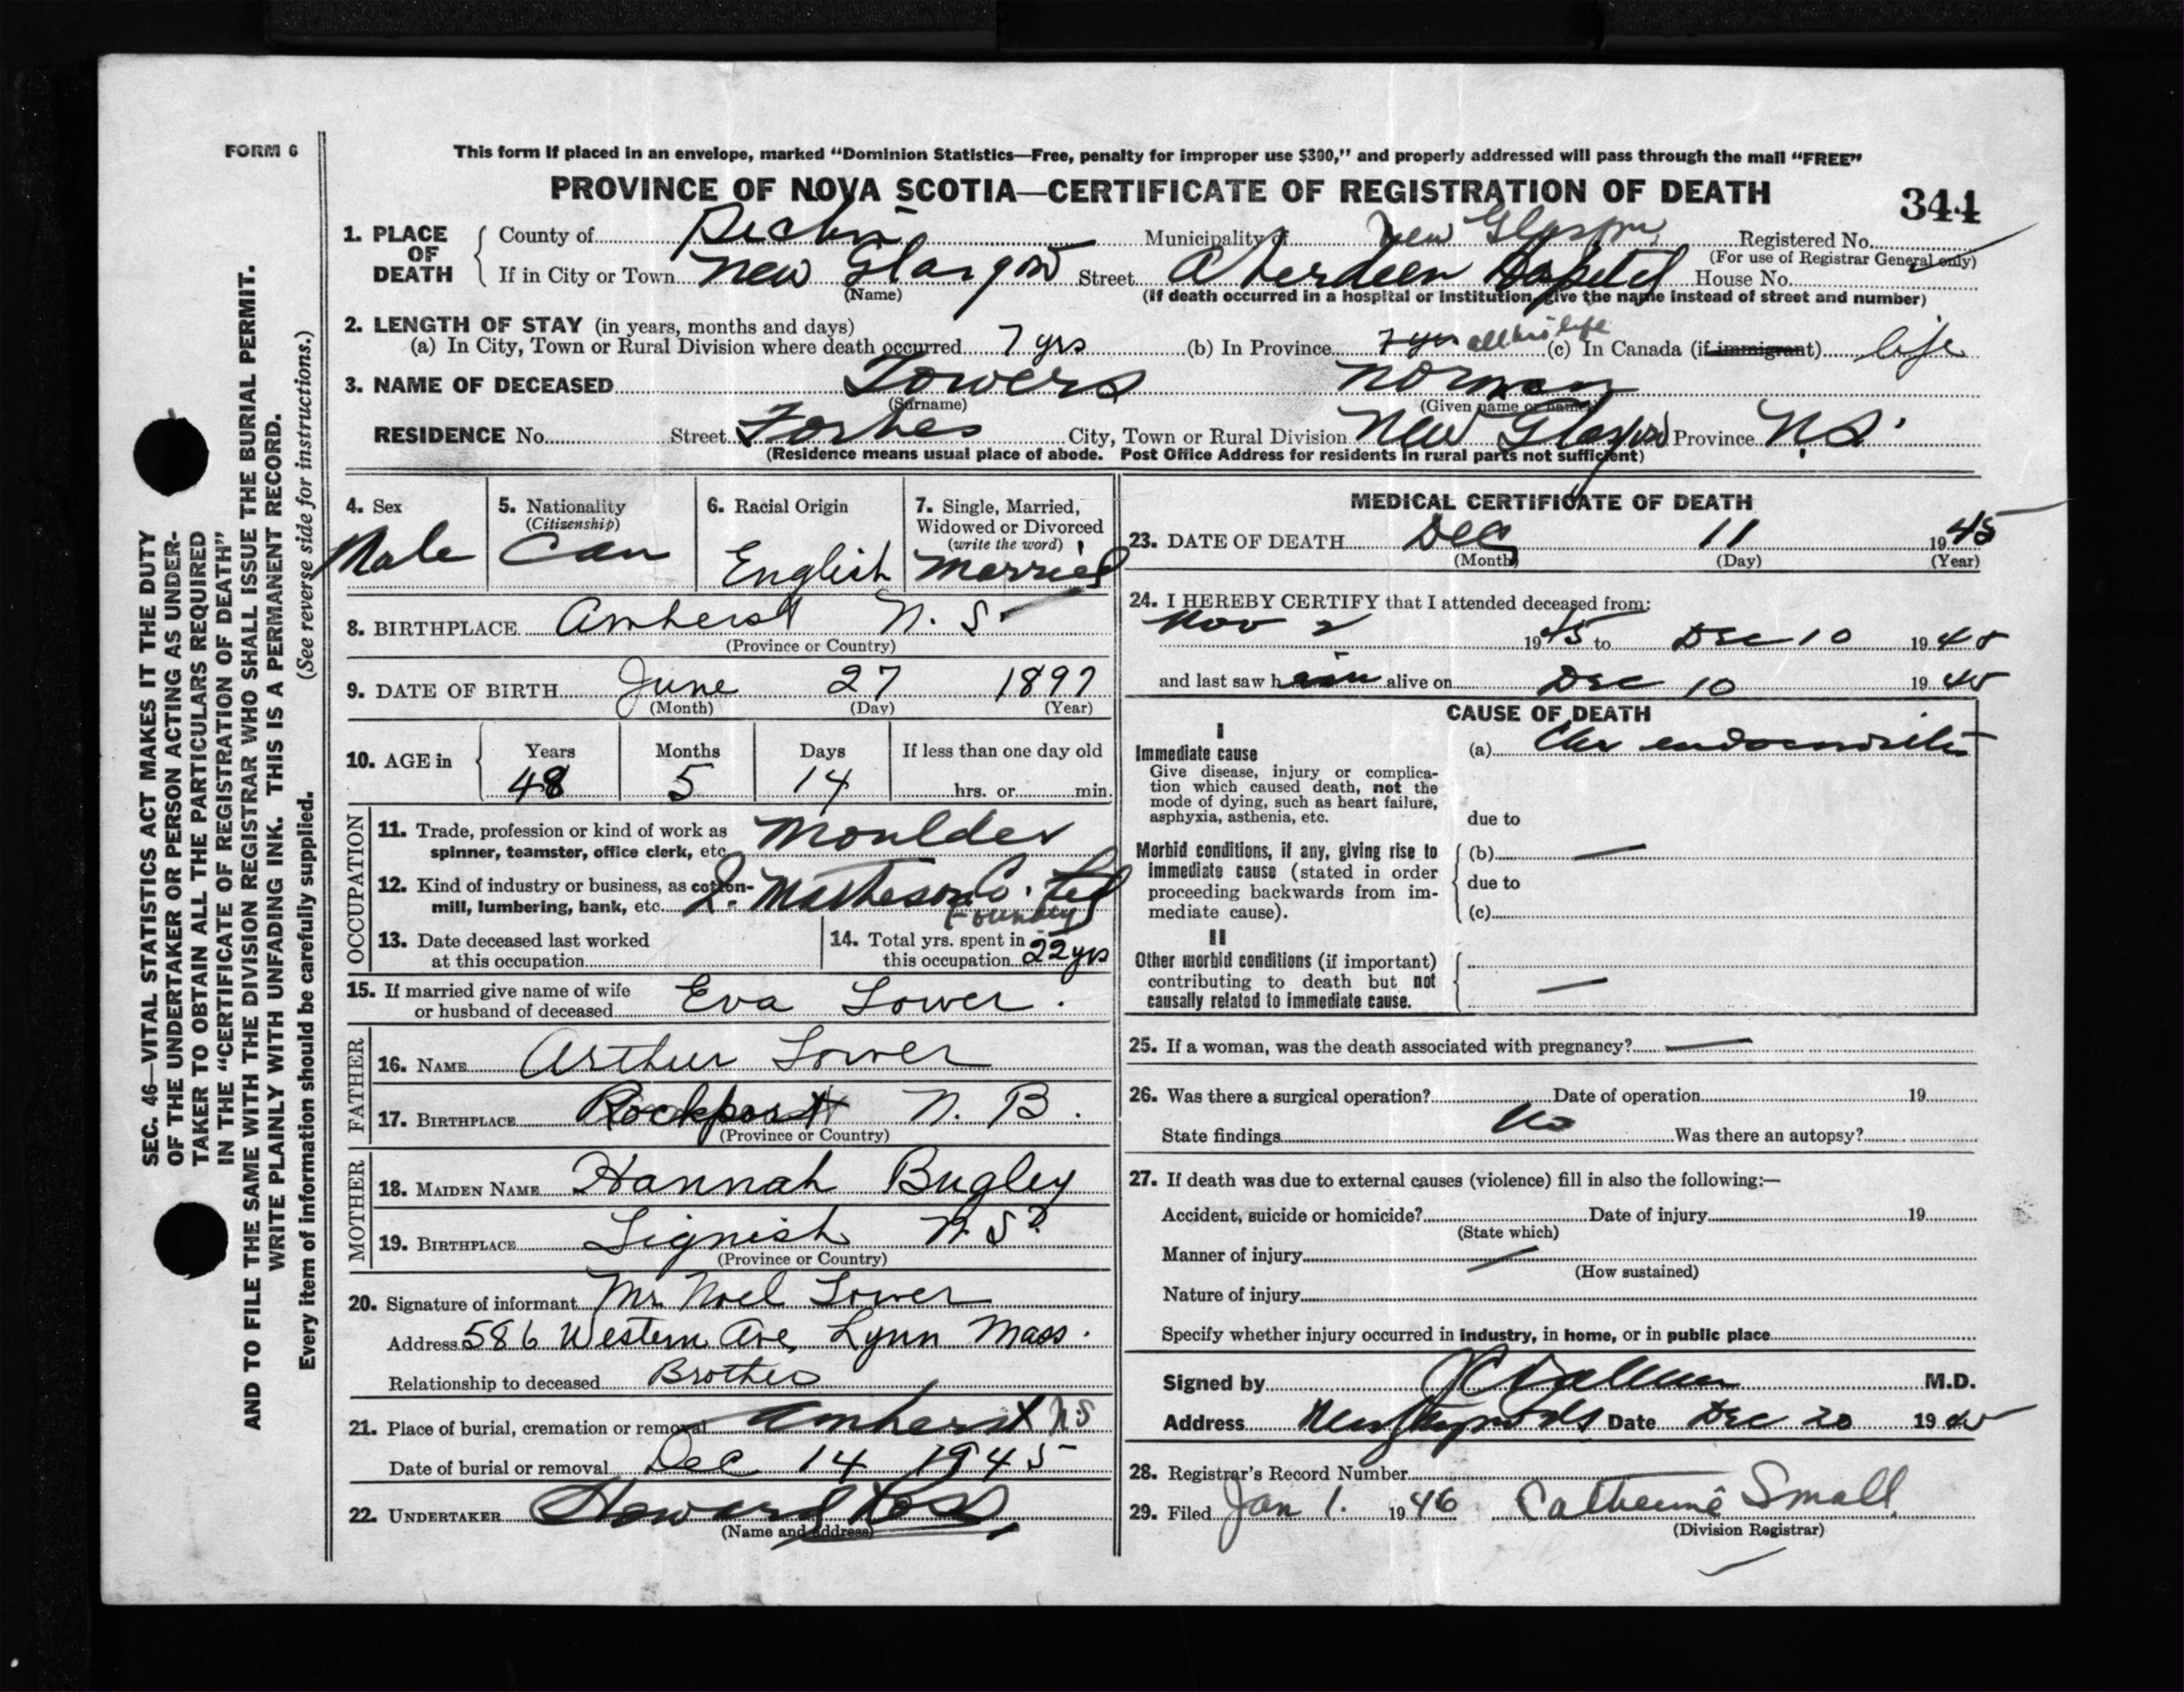 FORM 6
This form if placed in an envelope, marked “Dominion Statistics—Free, penalty for improper use $300,” and properly addressed will pass through the mail “FREE”
PROVINCE OF NOVA SCOTIA—CERTIFICATE OF REGISTRATION OF DEATH
344
1. PLACE OF DEATH
County of Pictou Municipality of New Glasgow Registered No.
(For use of Registrar General only)
If in City or Town New Glasgow Street Aberdeen Hospital House No.
(Name) (If death occurred in a hospital or institution, give the name instead of street and number)
2. LENGTH OF STAY (in years, months and days)
(a) In City, Town or Rural Division where death occurred 7 yrs (b) In Province 7 yrs all his life (c) In Canada (if immigrant) life
3. NAME OF DECEASED Towers Norman
(Surname) (Given name or names)
RESIDENCE No. Street Forbes City, Town or Rural Division New Glasgow Province N.S.
(Residence means usual place of abode. Post Office Address for residents in rural parts not sufficient)
4. Sex
Male
5. Nationality
(Citizenship)
Can
6. Racial Origin
English
7. Single, Married, Widowed or Divorced
(write the word)
Married
8. BIRTHPLACE Amherst N. S.
(Province or Country)
9. DATE OF BIRTH June 27 1897
(Month) (Day) (Year)
10. AGE in Years Months Days If less than one day old
48 5 14 hrs. or min.
OCCUPATION
11. Trade, profession or kind of work as spinner, teamster, office clerk, etc. Moulder
12. Kind of industry or business, as cotton-mill, lumbering, bank, etc. I. Matheson Co. Ltd
Foundry
13. Date deceased last worked at this occupation
14. Total yrs. spent in this occupation 22 yrs
15. If married give name of wife or husband of deceased Eva Tower.
FATHER
16. NAME Arthur Tower
17. BIRTHPLACE Rockport N. B.
(Province or Country)
MOTHER
18. MAIDEN NAME Hannah Bugley
19. BIRTHPLACE Tignish N. S?
(Province or Country)
20. Signature of informant Mr. Noel Tower
Address 586 Western Ave, Lynn Mass.
Relationship to deceased Brother
21. Place of burial, cremation or removal Amherst N.S
Date of burial or removal Dec 14 1945
22. UNDERTAKER Howard Ross
(Name and address)
MEDICAL CERTIFICATE OF DEATH
23. DATE OF DEATH Dec 11 1945
(Month) (Day) (Year)
24. I HEREBY CERTIFY that I attended deceased from:
Nov 2 1945 to Dec 10 1945
and last saw him alive on Dec 10 1945
CAUSE OF DEATH
I
Immediate cause
Give disease, injury or complication which caused death, not the mode of dying, such as heart failure, asphyxia, asthenia, etc.
(a) Chr endocarditis
due to
Morbid conditions, if any, giving rise to immediate cause (stated in order proceeding backwards from immediate cause).
(b) —
due to
(c)
II
Other morbid conditions (if important) contributing to death but not causally related to immediate cause.
—
25. If a woman, was the death associated with pregnancy? —
26. Was there a surgical operation? Date of operation 19
No
State findings Was there an autopsy?
27. If death was due to external causes (violence) fill in also the following:—
Accident, suicide or homicide? Date of injury 19
(State which)
Manner of injury —
(How sustained)
Nature of injury
Specify whether injury occurred in industry, in home, or in public place
Signed by M.D.
Address New Glasgow NS Date Dec 20 1945
28. Registrar's Record Number
29. Filed Jan 1. 1946 Catherine Small
(Division Registrar)
SEC. 46—VITAL STATISTICS ACT MAKES IT THE DUTY
OF THE UNDERTAKER OR PERSON ACTING AS UNDER-
TAKER TO OBTAIN ALL THE PARTICULARS REQUIRED
IN THE “CERTIFICATE OF REGISTRATION OF DEATH”
AND TO FILE THE SAME WITH THE DIVISION REGISTRAR WHO SHALL ISSUE THE BURIAL PERMIT.
WRITE PLAINLY WITH UNFADING INK. THIS IS A PERMANENT RECORD.
Every item of information should be carefully supplied. (See reverse side for instructions.)